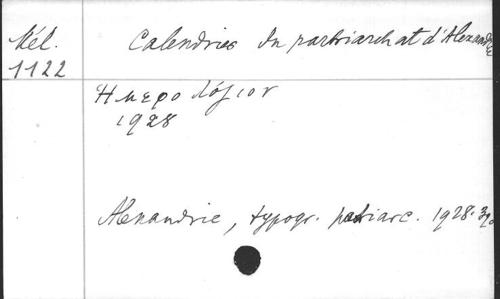 Mél. Calendries du partriarchat d'Alexandrie
1122
Ημερολόγιον
1928
Alexandrie, typogr. patriarc. 1928.